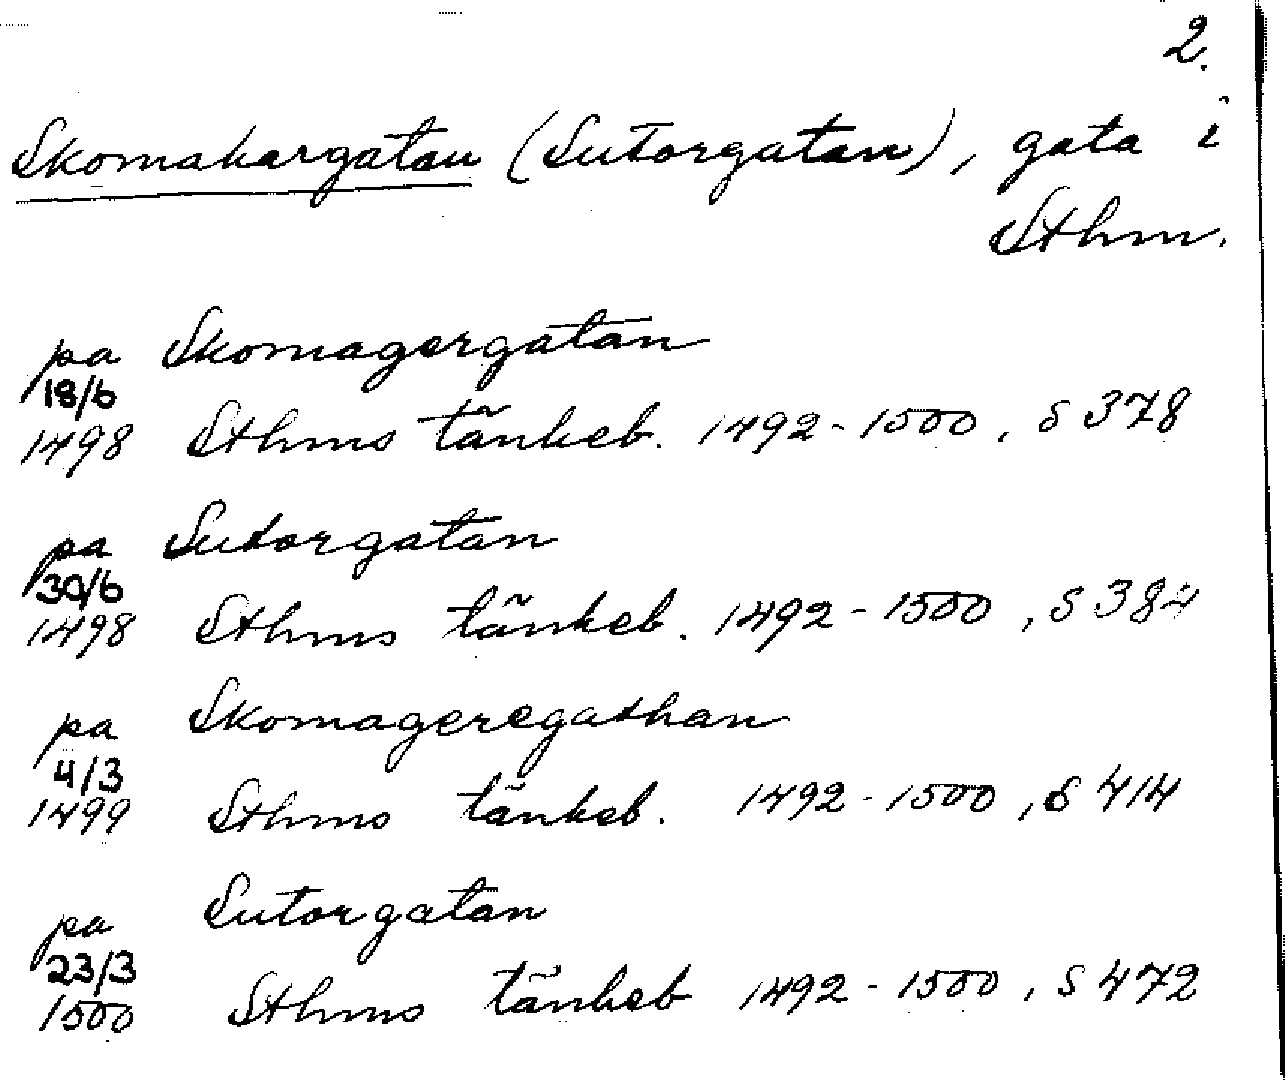 2.
Skomakargatan (Sutorgatan), gata i
Sthm.
pa Skomagergatan
18/6
1498 Sthms tänkeb. 1492-1500, s 378
pa Sutorgatan
30/6
1498 Sthms tänkeb. 1492-1500, s 384
pa Skomageregathan
4/3
1499 Sthms tänkeb. 1492-1500, s 414
pa Sutorgatan
23/3
1500 Sthms tänkeb 1492-1500, s 472